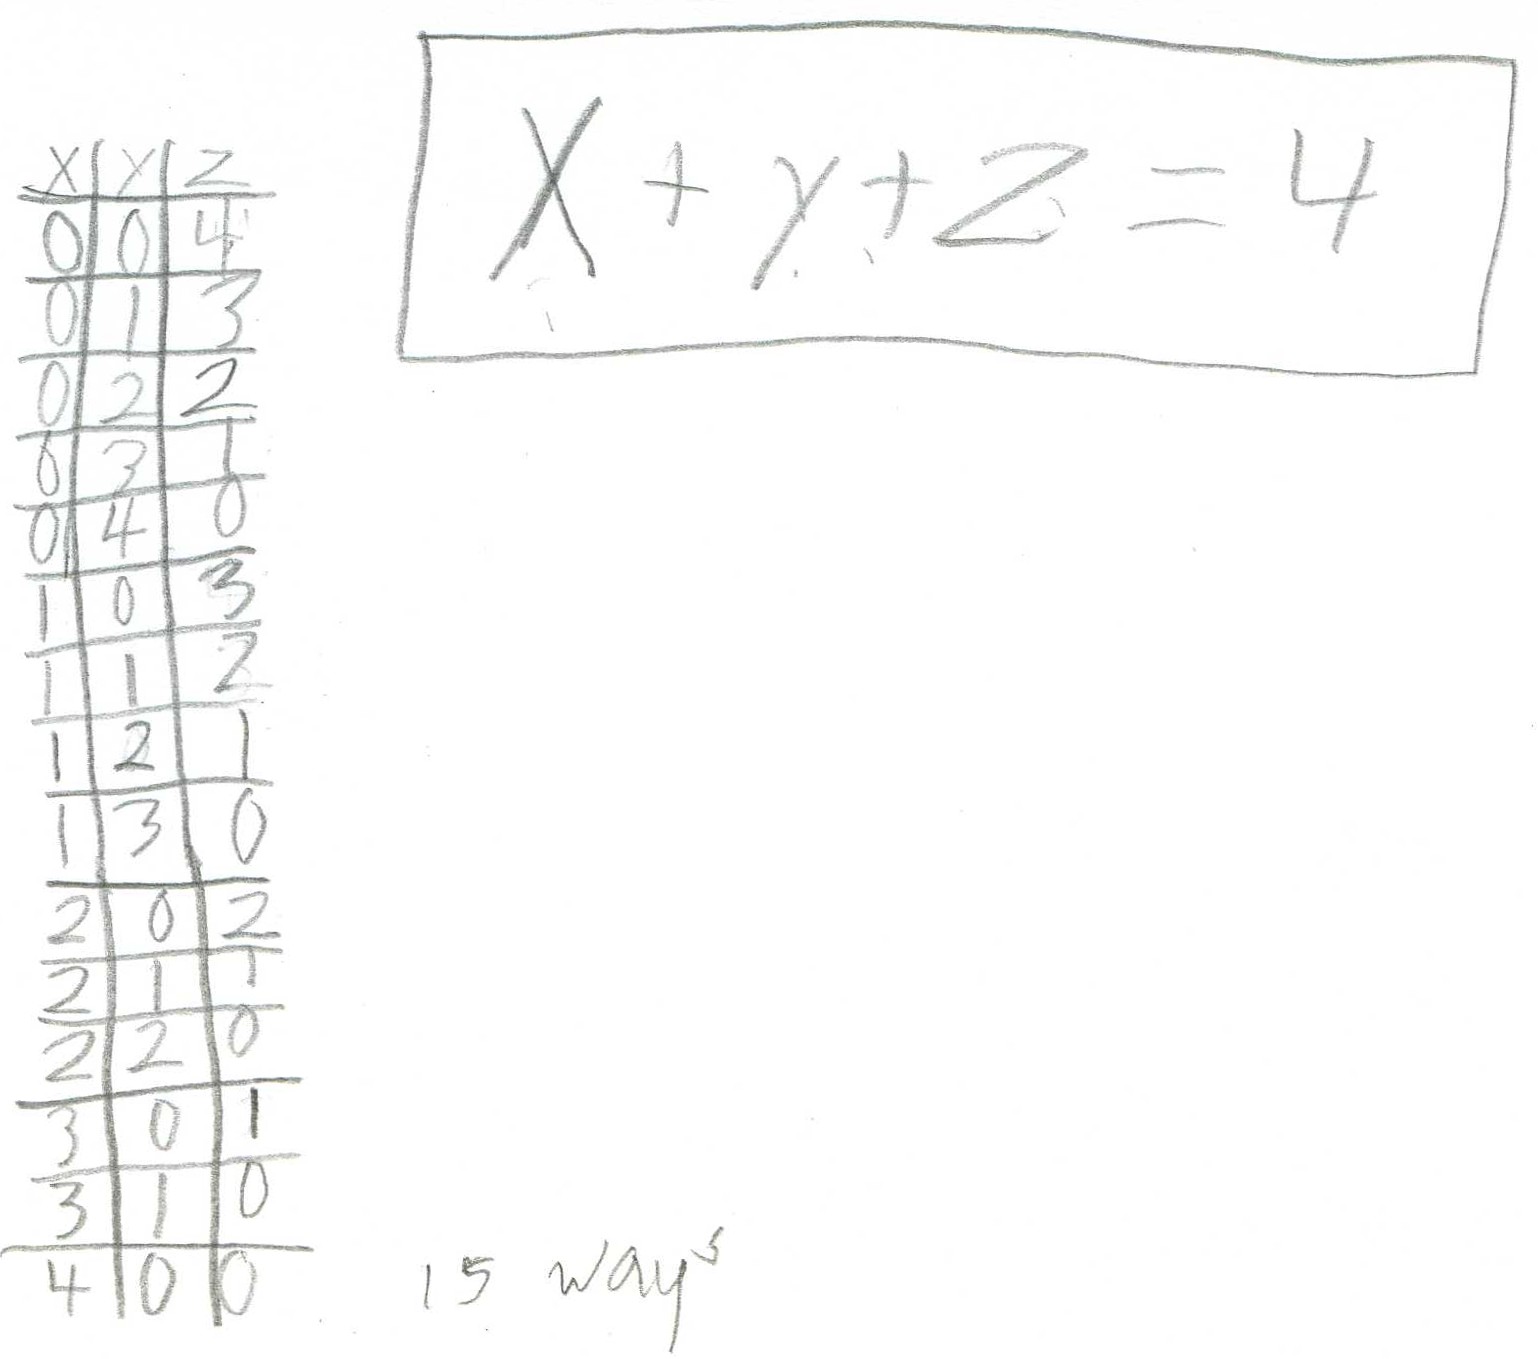 X + y + Z = 4
X y Z
0 0 4
0 1 3
0 2 2
0 3 1
0 4 0
1 0 3
1 1 2
1 2 1
1 3 0
2 0 2
2 1 1
2 2 0
3 0 1
3 1 0
4 0 0
15 ways